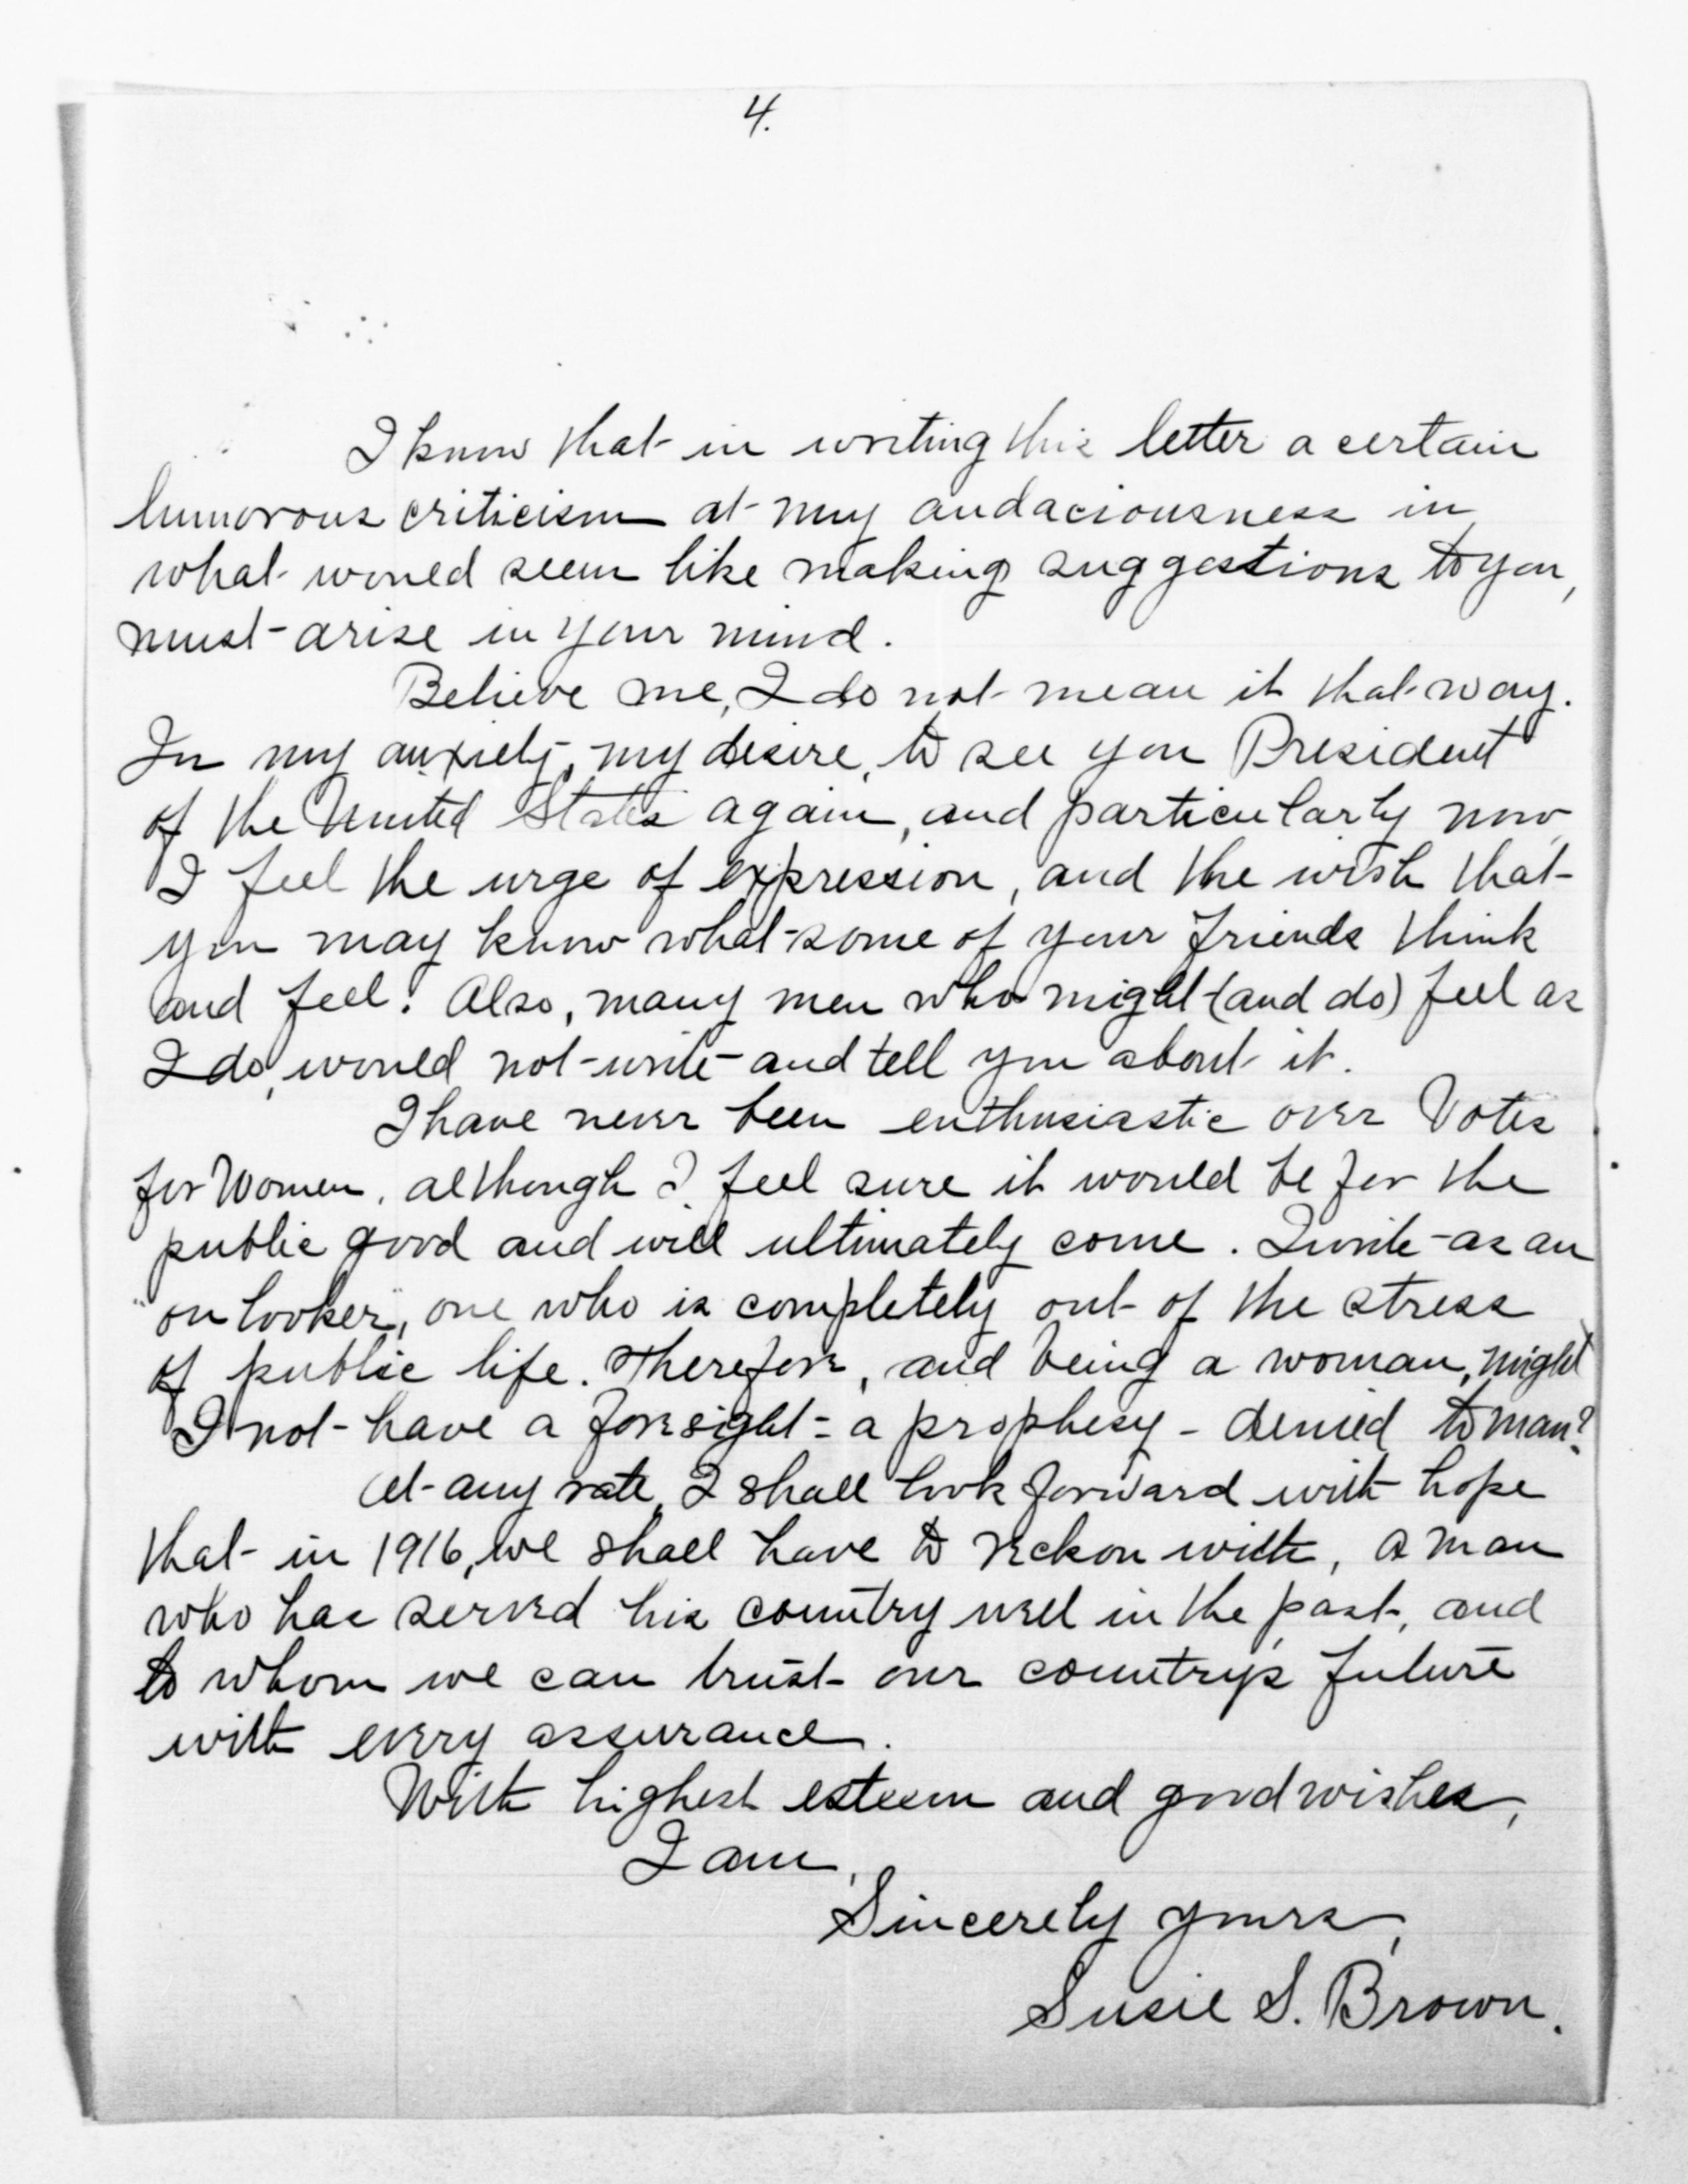 4.
I know that in writing this letter a certain
humorous criticism at my audaciousness in
what would seem like making suggestions to you,
must arise in your mind.
Believe me, I do not mean it that way.
In my anxiety, my desire, to see you President
of the United States again, and particularly now
I feel the urge of expression, and the wish that
you may know what some of your friends think
and feel. Also, many men who might (and do) feel as
I do, would not write and tell you about it.
I have never been enthusiastic over Votes
for Women, although I feel sure it would be for the
public good and will ultimately come. I write as an
"on looker", one who is completely out of the stress
of public life. Therefore, and being a woman, might
I not have a foresight - a prophesy - denied to man?
At any rate, I shall look forward with hope
that in 1916, we shall have to reckon with, a man
who has served his country well in the past, and
to whom we can trust our country's future
with every assurance.
With highest esteem and good wishes,
I am,
Sincerely yours,
Susie S. Brown.